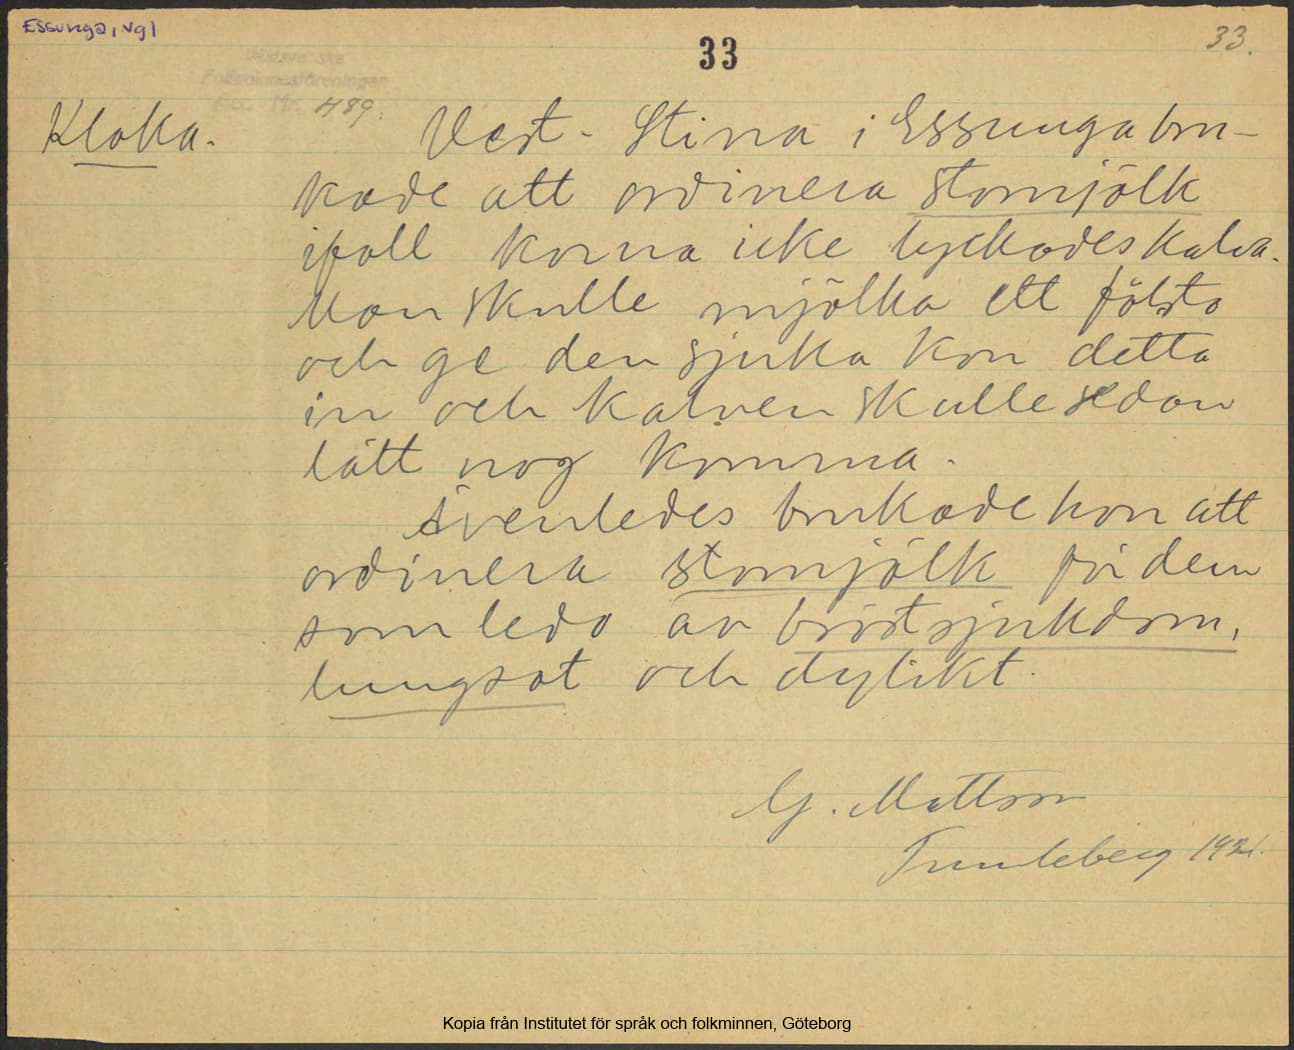 Essunga, Vgl
33
33.
Västsvenska
Folkminnesföreningen
Acc. Nr. 489.
Kloka.
Väst-Stina i Essunga bru-
kade att ordinera stomjölk
ifall korna icke lyckades kalva.
Man skulle mjölka ett fölsto
och ge den sjuka kon detta
in och kalven skulle sedan
lätt nog komma.
Ävenledes brukade hon att
ordinera stomjölk för dem
som ledo av bröstsjukdom,
lungsot och dylikt.
G. Mattson
Trumleberg 192
Kopia från Institutet för språk och folkminnen, Göteborg